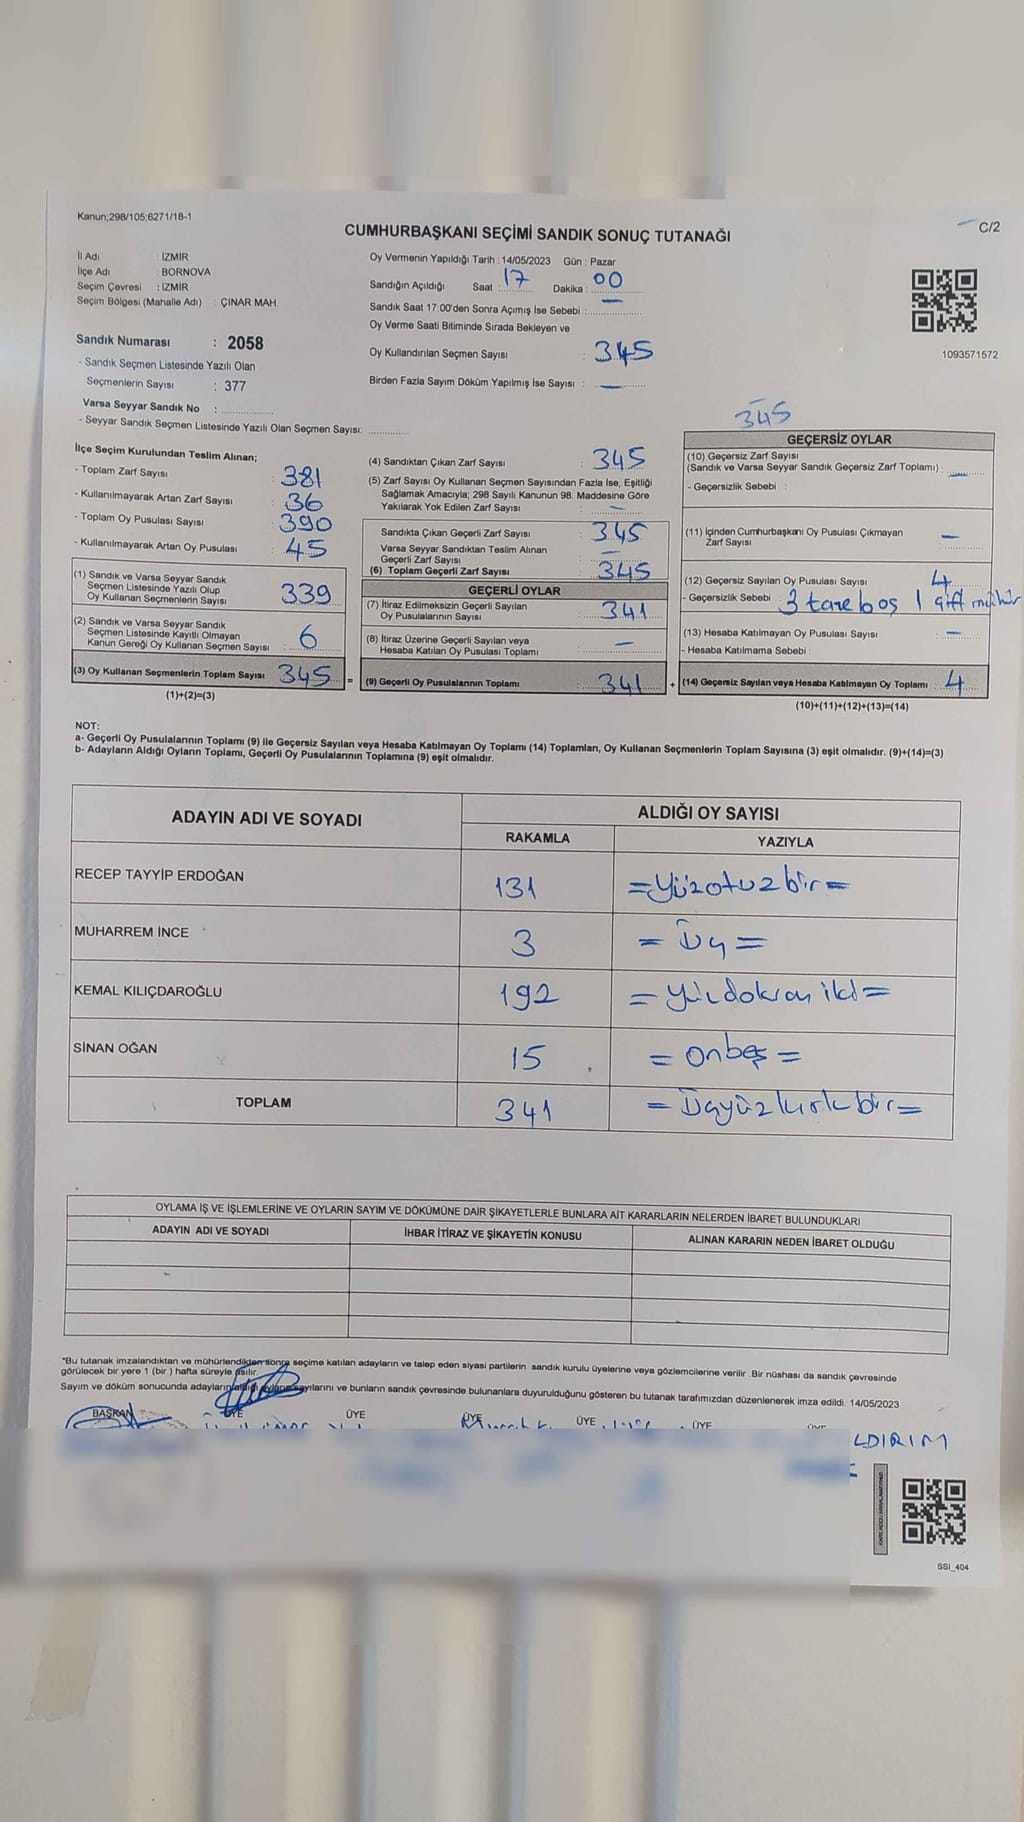 Kanun;298/105;6271/18-1
C/2
CUMHURBAŞKANI SEÇİMİ SANDIK SONUÇ TUTANAĞI
İl Adı : İZMİR
İlçe Adı : BORNOVA
Seçim Çevresi : İZMİR
Seçim Bölgesi (Mahalle Adı) : ÇINAR MAH.
Sandık Numarası : 2058
- Sandık Seçmen Listesinde Yazılı Olan
Seçmenlerin Sayısı : 377
Varsa Seyyar Sandık No : ..............
- Seyyar Sandık Seçmen Listesinde Yazılı Olan Seçmen Sayısı: ..............
Oy Vermenin Yapıldığı Tarih : 14/05/2023 Gün : Pazar
Sandığın Açıldığı Saat : 17 Dakika : 00
Sandık Saat 17:00'den Sonra Açımış İse Sebebi : —
Oy Verme Saati Bitiminde Sırada Bekleyen ve
Oy Kullandırılan Seçmen Sayısı : 345
Birden Fazla Sayım Döküm Yapılmış İse Sayısı : —
1093571572
345
İlçe Seçim Kurulundan Teslim Alınan;
- Toplam Zarf Sayısı : 381
- Kullanılmayarak Artan Zarf Sayısı : 36
- Toplam Oy Pusulası Sayısı : 390
- Kullanılmayarak Artan Oy Pusulası : 45
(1) Sandık ve Varsa Seyyar Sandık
Seçmen Listesinde Yazılı Olup
Oy Kullanan Seçmenlerin Sayısı : 339
(2) Sandık ve Varsa Seyyar Sandık
Seçmen Listesinde Kayıtlı Olmayan
Kanun Gereği Oy Kullanan Seçmen Sayısı : 6
(3) Oy Kullanan Seçmenlerin Toplam Sayısı : 345
(1)+(2)=(3)
(4) Sandıktan Çıkan Zarf Sayısı : 345
(5) Zarf Sayısı Oy Kullanan Seçmen Sayısından Fazla İse, Eşitliği
Sağlamak Amacıyla; 298 Sayılı Kanunun 98. Maddesine Göre
Yakılarak Yok Edilen Zarf Sayısı : —
Sandıkta Çıkan Geçerli Zarf Sayısı : 345
Varsa Seyyar Sandıktan Teslim Alınan
Geçerli Zarf Sayısı : —
(6) Toplam Geçerli Zarf Sayısı : 345
GEÇERLİ OYLAR
(7) İtiraz Edilmeksizin Geçerli Sayılan
Oy Pusulalarının Sayısı : 341
(8) İtiraz Üzerine Geçerli Sayılan veya
Hesaba Katılan Oy Pusulası Toplamı : —
= (9) Geçerli Oy Pusulalarının Toplamı : 341
GEÇERSİZ OYLAR
(10) Geçersiz Zarf Sayısı
(Sandık ve Varsa Seyyar Sandık Geçersiz Zarf Toplamı) : —
- Geçersizlik Sebebi :
(11) İçinden Cumhurbaşkanı Oy Pusulası Çıkmayan
Zarf Sayısı : —
(12) Geçersiz Sayılan Oy Pusulası Sayısı : 4
- Geçersizlik Sebebi : 3 tane boş 1 çift mühür
(13) Hesaba Katılmayan Oy Pusulası Sayısı : —
- Hesaba Katılmama Sebebi :
+ (14) Geçersiz Sayılan veya Hesaba Katılmayan Oy Toplamı : 4
(10)+(11)+(12)+(13)=(14)
NOT:
a- Geçerli Oy Pusulalarının Toplamı (9) ile Geçersiz Sayılan veya Hesaba Katılmayan Oy Toplamı (14) Toplamları, Oy Kullanan Seçmenlerin Toplam Sayısına (3) eşit olmalıdır. (9)+(14)=(3)
b- Adayların Aldığı Oyların Toplamı, Geçerli Oy Pusulalarının Toplamına (9) eşit olmalıdır.
ADAYIN ADI VE SOYADI
ALDIĞI OY SAYISI
RAKAMLA YAZIYLA
RECEP TAYYİP ERDOĞAN 131 =Yüzotuzbir=
MUHARREM İNCE 3 = Üç =
KEMAL KILIÇDAROĞLU 192 = Yüzdoksan iki =
SİNAN OĞAN 15 = Onbeş =
TOPLAM 341 = Üçyüzkırkbir =
OYLAMA İŞ VE İŞLEMLERİNE VE OYLARIN SAYIM VE DÖKÜMÜNE DAİR ŞİKAYETLERLE BUNLARA AİT KARARLARIN NELERDEN İBARET BULUNDUKLARI
ADAYIN ADI VE SOYADI İHBAR İTİRAZ VE ŞİKAYETİN KONUSU ALINAN KARARIN NEDEN İBARET OLDUĞU
*Bu tutanak imzalandıktan ve mühürlendikten sonra seçime katılan adayların ve talep eden siyasi partilerin sandık kurulu üyelerine veya gözlemcilerine verilir .Bir nüshası da sandık çevresinde
görülecek bir yere 1 (bir ) hafta süreyle asılır.
Sayım ve döküm sonucunda adayların aldığı oyların sayılarını ve bunların sandık çevresinde bulunanlara duyurulduğunu gösteren bu tutanak tarafımızdan düzenlenerek imza edildi. 14/05/2023
BAŞKAN ÜYE ÜYE ÜYE ÜYE ÜYE
SSI_404